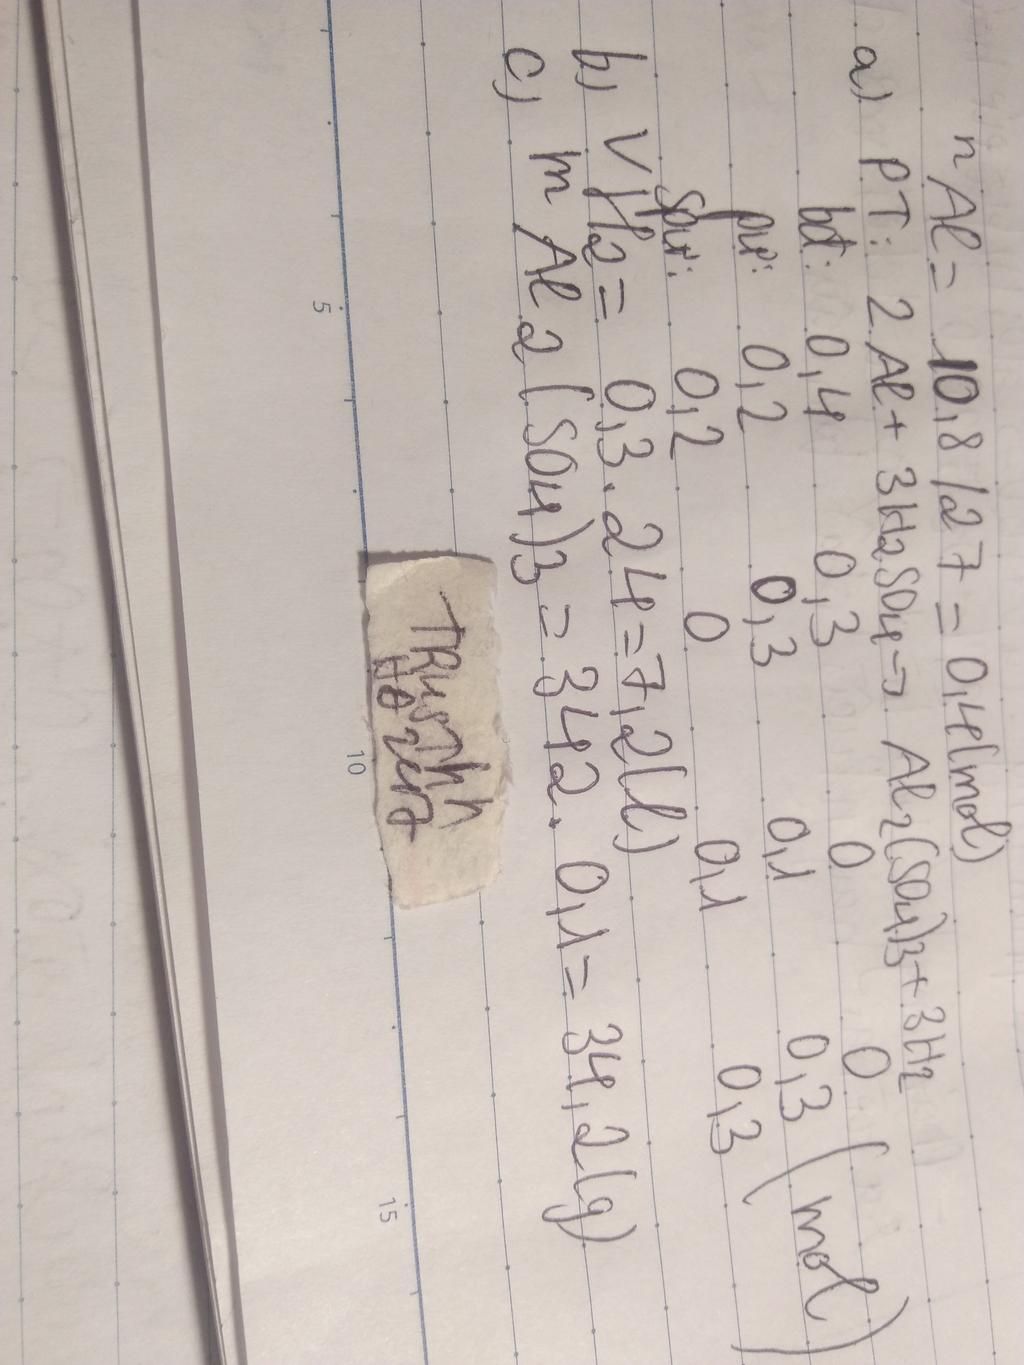 nAl = 10,8/27 = 0,4(mol)
a) PT: 2Al + 3H2SO4 → Al2(SO4)3 + 3H2
bđ: 0,4 0,3 0 0 (mol)
pư: 0,2 0,3 0,1 0,3
spư: 0,2 0 0,1 0,3
b) VH2 = 0,3.24 = 7,2(l)
c) mAl2(SO4)3 = 342.0,1 = 34,2(g)
5
10
15